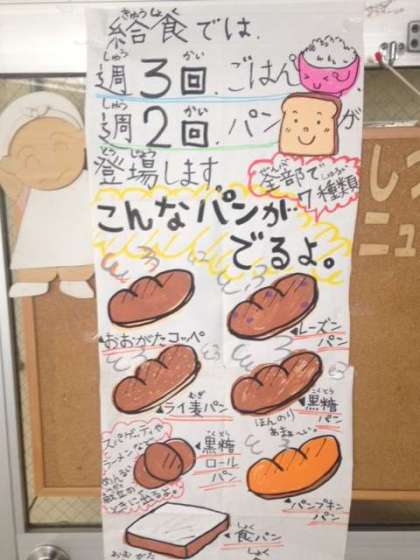 給食では、
週3回、ごはん
週2回、パンが
登場します
全部で
7種類
こんなパンが
でるよ。
おおがたコッペ
レーズン
パン
ライ麦パン
黒糖
パン
ほんのり
あま〜い。
スパゲッティや
ラーメン
めんるい
献立の
ときにでるよ。
黒糖
ロール
パン
パンプキン
パン
食パン
おおがた